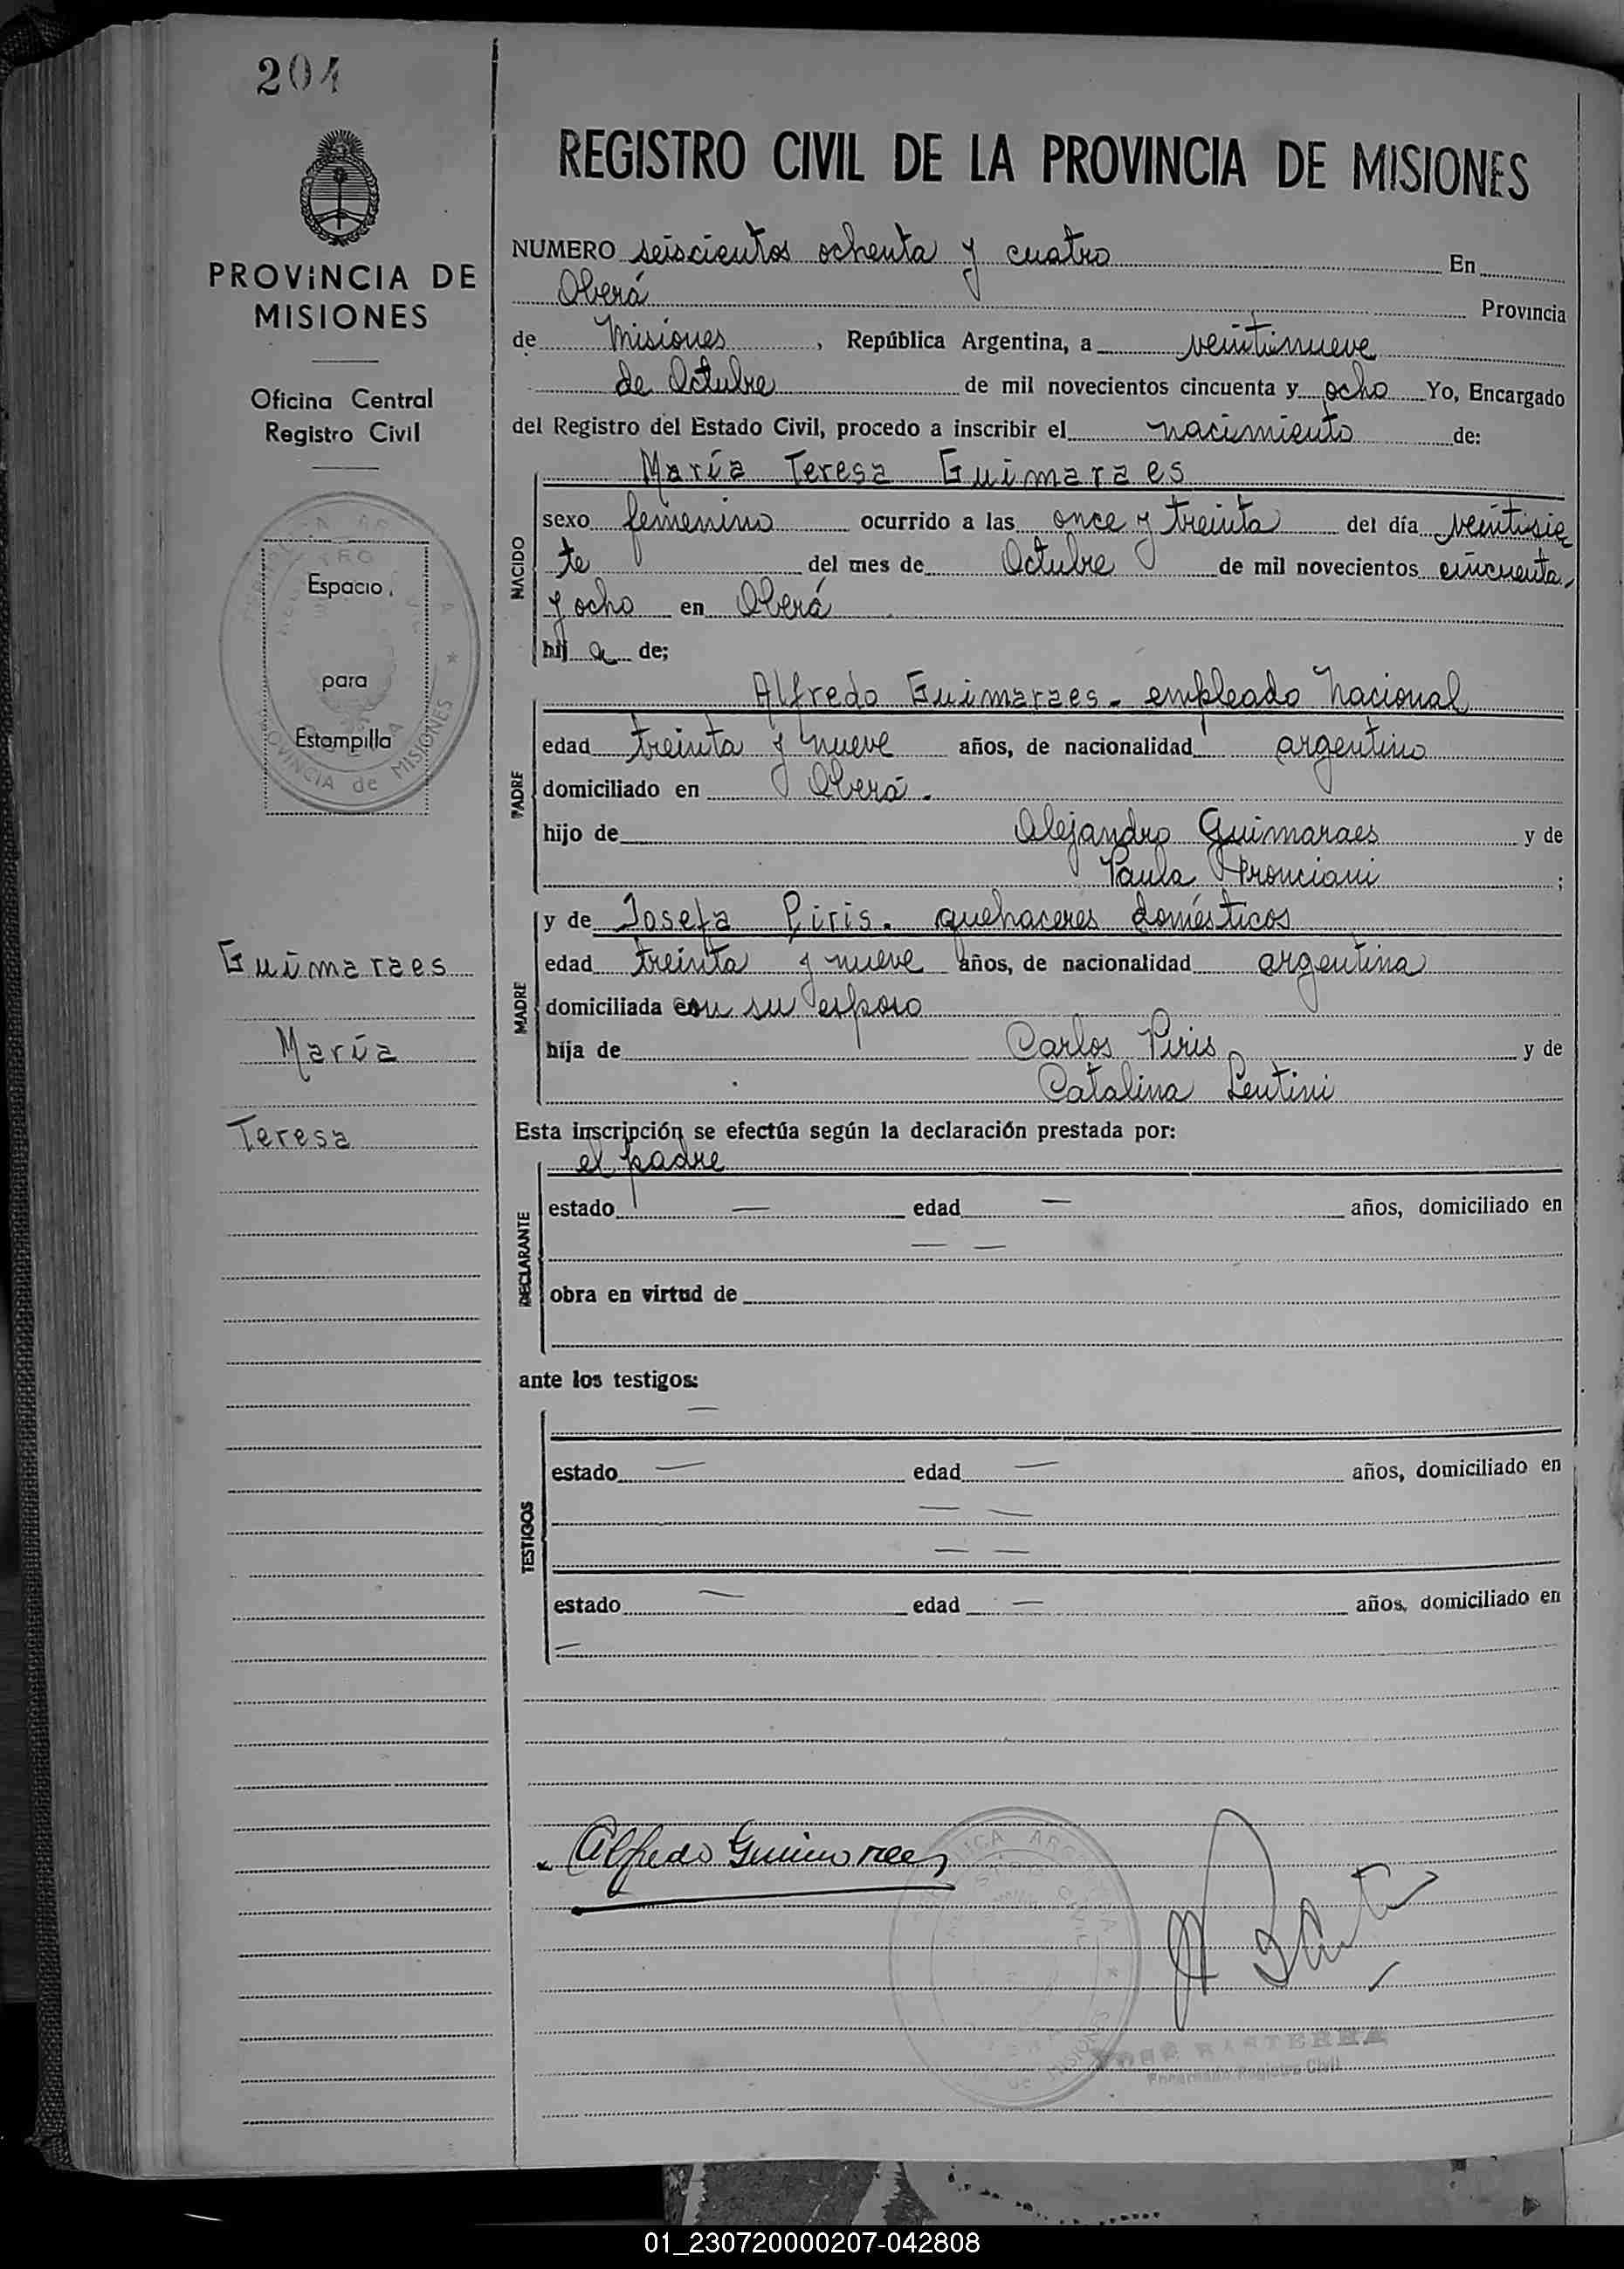 204
PROVINCIA DE
MISIONES
Oficina Central
Registro Civil
Espacio
para
Estampilla
PROVINCIA de MISIONES
Guimaraes
María
Teresa
REGISTRO CIVIL DE LA PROVINCIA DE MISIONES
NUMERO seiscientos ochenta y cuatro En
Oberá Provincia
de Misiones, República Argentina, a veintinueve
de Octubre de mil novecientos cincuenta y ocho Yo, Encargado
del Registro del Estado Civil, procedo a inscribir el nacimiento de:
María Teresa Guimaraes
NACIDO
sexo femenino ocurrido a las once y treinta del día veintisie
te del mes de Octubre de mil novecientos cincuenta
y ocho en Oberá
hij a de;
PADRE
Alfredo Guimaraes - empleado Nacional
edad treinta y nueve años, de nacionalidad argentino
domiciliado en Oberá.
hijo de Alejandro Guimaraes y de
Paula ;
MADRE
y de Josefa Piris. quehaceres domésticos
edad treinta y nueve años, de nacionalidad argentina
domiciliada con su esposo
hija de Carlos Piris y de
Catalina Lentini
Esta inscripción se efectúa según la declaración prestada por:
DECLARANTE
el padre
estado — edad — años, domiciliado en
— —
obra en virtud de
ante los testigos:
TESTIGOS
—
estado — edad — años, domiciliado en
— —
— —
estado — edad — años, domiciliado en
—
Alfredo Guimaraes
Encargado Registro Civil
01_230720000207-042808